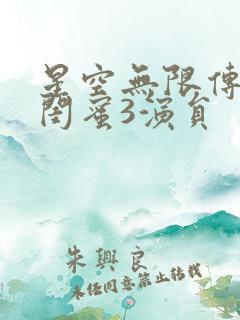 星空無限傳
閨蜜3演員
朱興良
未任同意禁止转载